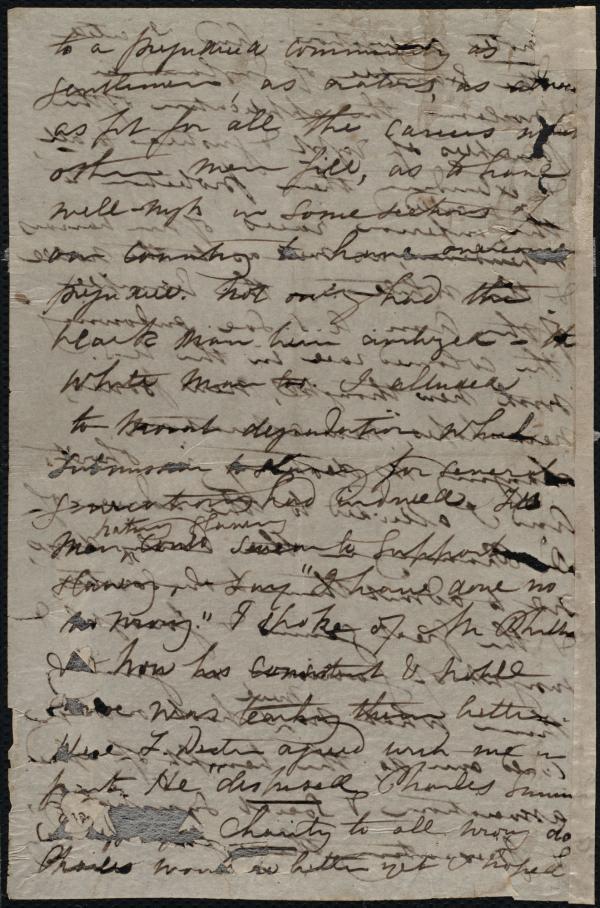 to a prejudiced community as
gentlemen, as orators, as
as fit for all the careers
other men fill, as to have
well-nigh in some sections
our country to have overcome
prejudice. Not only had the
black man been civilized - the
white man too. I alluded
to moral degradation which
submission to slavery for several
generations had induced.
men could swear to support
slavery, & say "I have done no
no wrong" I spoke of Mr Phillips
& how his consistent & noble
was teaching them better.
agreed with me in
part. He "despised" Charles Sumner
Charity to all wrong do
Charles would do better yet I hoped